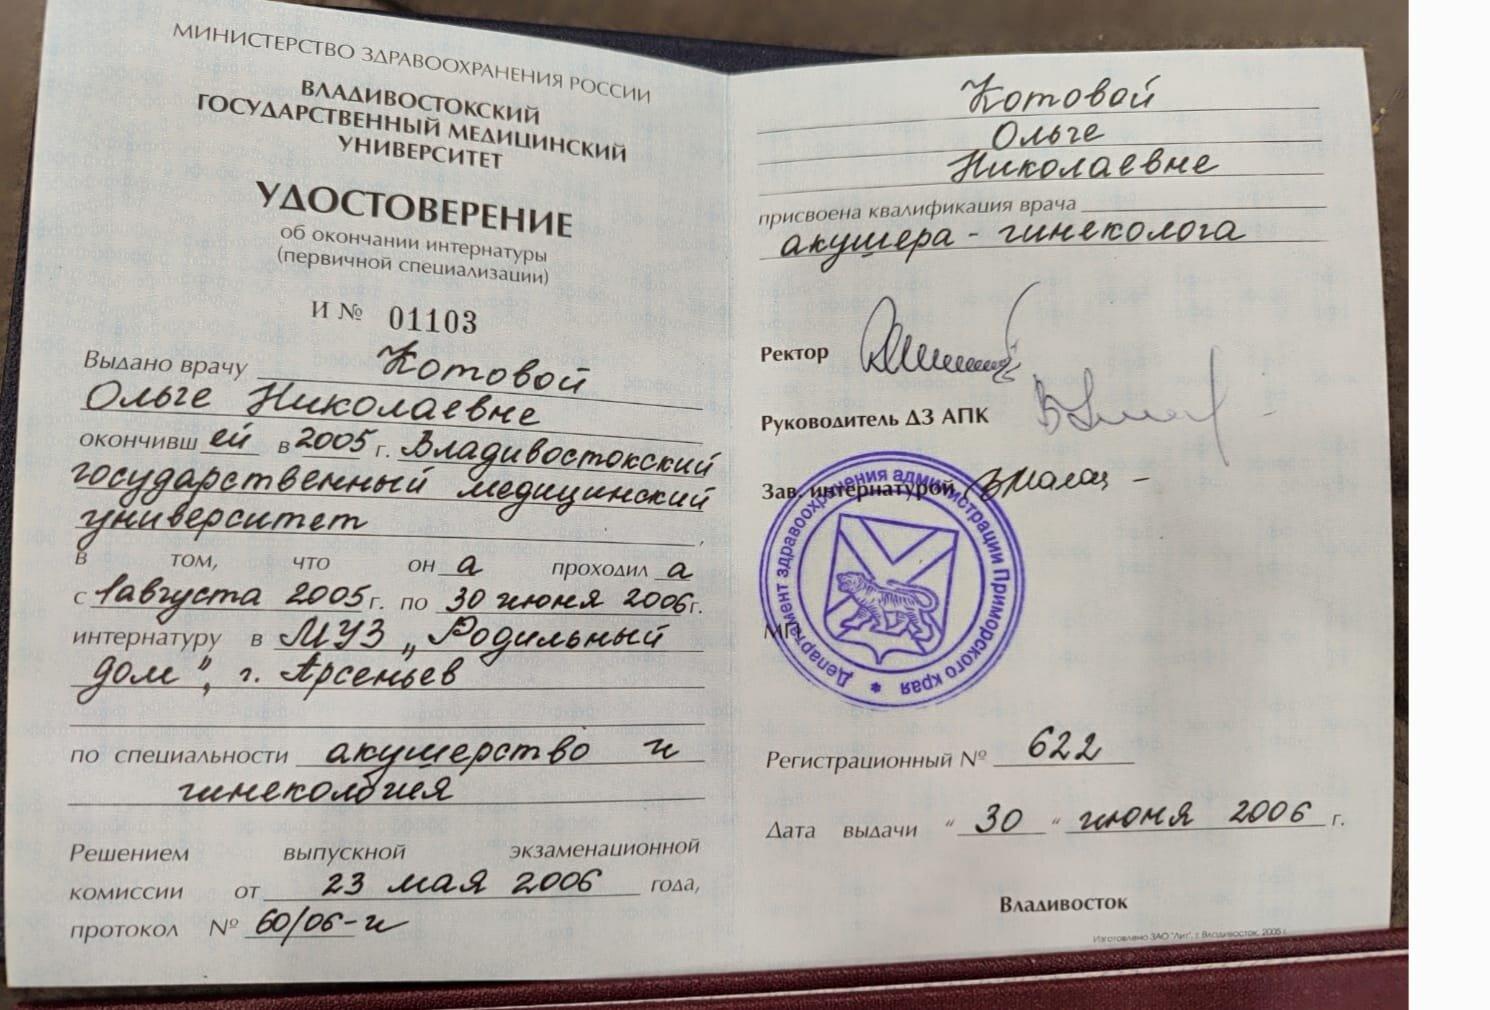 МИНИСТЕРСТВО ЗДРАВООХРАНЕНИЯ РОССИИ
ВЛАДИВОСТОКСКИЙ
ГОСУДАРСТВЕННЫЙ МЕДИЦИНСКИЙ
УНИВЕРСИТЕТ
УДОСТОВЕРЕНИЕ
об окончании интернатуры
(первичной специализации)
И № 01103
Выдано врачу Котовой
Ольге Николаевне
окончивш ей в 2005 г. Владивостокский
государственный медицинский
университет
в том, что он а проходил а
с 1 августа 2005 г. по 30 июня 2006 г.
интернатуру в МУЗ „Родильный
дом", г. Арсеньев
по специальности акушерство и
гинекология
Решением выпускной экзаменационной
комиссии от 23 мая 2006 года,
протокол № 60/06-и
Котовой
Ольге
Николаевне
присвоена квалификация врача
акушера - гинеколога
Ректор
Руководитель ДЗ АПК
Зав. интернатурой
Департамент здравоохранения администрации Приморского края
МП
Регистрационный № 622
Дата выдачи "30" июня 2006 г.
Владивосток
Изготовлено ЗАО "Лит", г. Владивосток, 2005 г.